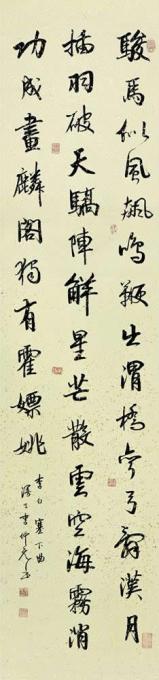 駿馬似風飆鳴鞭出渭橋彎弓辭漢月
插羽破天驕陣解星芒散雲空海霧消
功成畫麟閣獨有霍嫖姚
李白塞下曲